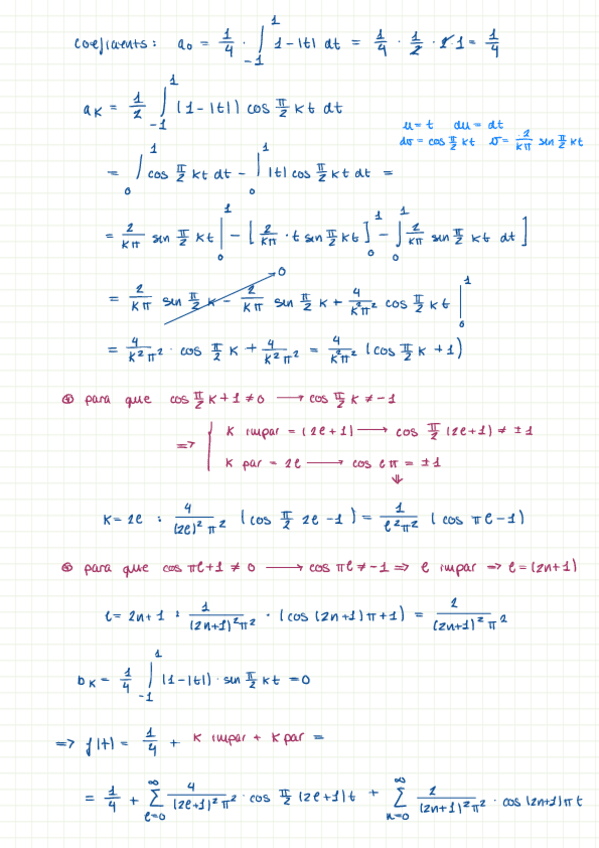 coeficients: a₀ = 1/4 · ∫₋₁¹ 1-|t| dt = 1/4 · 1/2 · 2·1 = 1/4
aₖ = 1/2 ∫₋₁¹ (1-|t|) cos π/2 kt dt
u = t du = dt
dv = cos π/2 kt v = 2/kπ sin π/2 kt
= ∫₀¹ cos π/2 kt dt - ∫₀¹ |t| cos π/2 kt dt =
= 2/kπ sin π/2 kt |₀¹ - [2/kπ · t sin π/2 kt]₀¹ - ∫₀¹ 2/kπ sin π/2 kt dt]
= 2/kπ sin π/2 k - 2/kπ sin π/2 k + 4/k²π² cos π/2 kt |₀¹
0
= 4/k²π² · cos π/2 k + 4/k²π² = 4/k²π² (cos π/2 k + 1)
para que cos π/2 k + 1 ≠ 0 ⟶ cos π/2 k ≠ -1
⇒ { k impar = (2l+1) ⟶ cos π/2 (2l+1) ≠ ±1
k par = 2l ⟶ cos lπ = ±1
⇓
k = 2l : 4/(2l)²π² (cos π/2 2l - 1) = 1/l²π² (cos πl - 1)
para que cos πl + 1 ≠ 0 ⟶ cos πl ≠ -1 ⇒ l impar ⇒ l = (2n+1)
l = 2n+1 : 1/(2n+1)²π² · (cos (2n+1)π + 1) = 2/(2n+1)²π²
bₖ = 1/4 ∫₋₁¹ (1-|t|) · sin π/2 kt = 0
⇒ f(t) = 1/4 + k impar + k par =
= 1/4 + ∑_{l=0}^∞ 4/(2l+1)²π² · cos π/2 (2l+1)t + ∑_{n=0}^∞ 2/(2n+1)²π² · cos(2n+1)πt